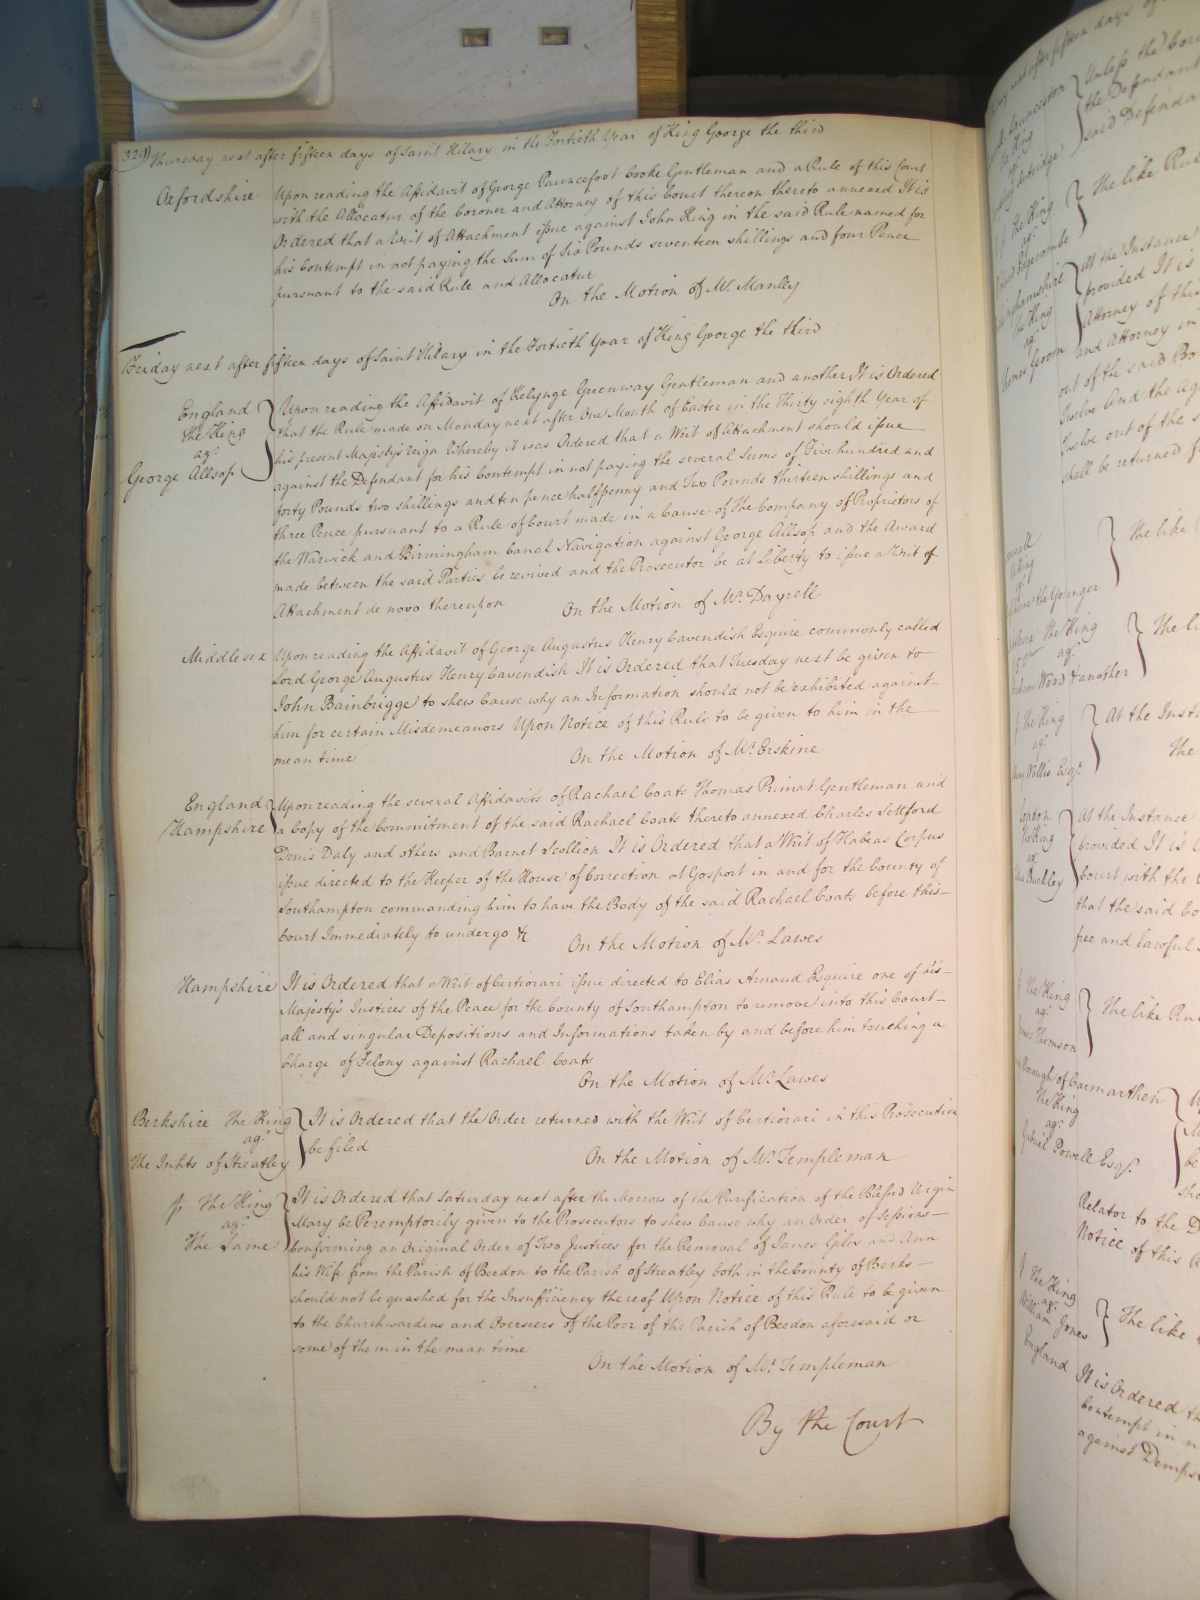 Thursday next after fifteen days of Saint Hilary in the Fortieth Year of King George the third
Oxfordshire
Upon reading the Affidavit of George Pauncefoot Cooke Gentleman and a Rule of this Court
with the Allocatur of the Coroner and Attorney of this Court thereon thereto annexed It is
Ordered that a Writ of Attachment issue against John King in the said Rule named for
his Contempt in not paying the Sum of Six Pounds seventeen shillings and four Pence
pursuant to the said Rule and Allocatur
On the Motion of Mr. Manley
Friday next after fifteen days of Saint Hilary in the Fortieth Year of King George the third
England
The King
agt.
George Allsop
Upon reading the Affidavit of Kelynge Greenway Gentleman and another It is Ordered
that the Rule made on Monday next after One Month of Easter in the Thirty eighth Year of
his present Majesty's reign Whereby it was Ordered that a Writ of Attachment should issue
against the Defendant for his Contempt in not paying the several Sums of Five hundred and
forty Pounds two shillings and ten pence halfpenny and Two Pounds thirteen shillings and
three Pence pursuant to a Rule of Court made in a Cause of The Company of Proprietors of
the Warwick and Birmingham Canal Navigation against George Allsop and the Award
made between the said Parties be revived and the Prosecutor be at Liberty to issue a Writ of
Attachment de novo thereupon
On the Motion of Mr. Dayrell
Middlesex
Upon reading the Affidavit of George Augustus Henry Cavendish Esquire commonly called
Lord George Augustus Henry Cavendish It is Ordered that Tuesday next be given to
John Bainbrigge to shew Cause why an Information should not be exhibited against
him for certain Misdemeanors Upon Notice of this Rule to be given to him in the
mean time
On the Motion of Mr. Erskine
England
Hampshire
Upon reading the several Affidavits of Rachael Coats Thomas Primat Gentleman and
a Copy of the Commitment of the said Rachael Coats thereto annexed Charles
Denis Daly and others and Barnet Scollion It is Ordered that a Writ of Habeas Corpus
issue directed to the Keeper of the House of Correction at Gosport in and for the County of
Southampton commanding him to have the Body of the said Rachael Coats before this
Court Immediately to undergo &c
On the Motion of Mr. Lawes
Hampshire
It is Ordered that a Writ of Certiorari issue directed to Elias Arnaud Esquire one of his
Majesty's Justices of the Peace for the County of Southampton to remove into this Court
all and singular Depositions and Informations taken by and before him touching a
Charge of Felony against Rachael Coats
On the Motion of Mr. Lawes
Berkshire The King
agt.
The Inhts of Streatley
It is Ordered that the Order returned with the Writ of Certiorari in this Prosecution
be filed
On the Motion of Mr. Templeman
The King
agt.
The Same
It is Ordered that Saturday next after the Morrow of the Purification of the Blessed Virgin
Mary be Peremptorily given to the Prosecutors to shew Cause why an Order of Sessions
Confirming an Original Order of Two Justices for the Removal of James Giles and Ann
his Wife from the Parish of Beedon to the Parish of Streatley both in the County of Berks
should not be quashed for the Insufficiency thereof Upon Notice of this Rule to be given
to the Churchwardens and Overseers of the Poor of the Parish of Beedon aforesaid or
some of them in the mean time
On the Motion of Mr. Templeman
By the Court
Unless the
the Defendant
said Defenda
The like Rul
At the Instance
provided It is
Attorney of this
and Attorney in
out of the said Bo
Twelve And the ag
Twelve out of the s
shall be returned f
the Younger
The like
The King
agt.
Wood & another
The li
The King
agt.
Willis Esqr.
At the Insta
The
London
The King
agt.
Buckley
At the Instance
provided It is O
Court with the
that the said Co
free and lawful
The King
agt.
James Thomson
The like Ru
Borough of Carmarthen
The King
agt.
Gabriel Powell Esqr.
Relator to the D
Notice of this R
The King
agt.
William Jones
The like
England
It is Ordered th
Contempt in n
against Demps